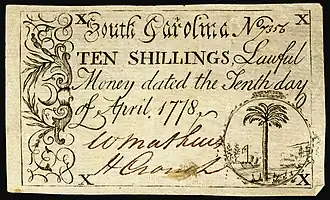 X X
South Carolina No 7356
TEN SHILLINGS, Lawful
Money dated the Tenth day
of April, 1778,
H Crouch
X X